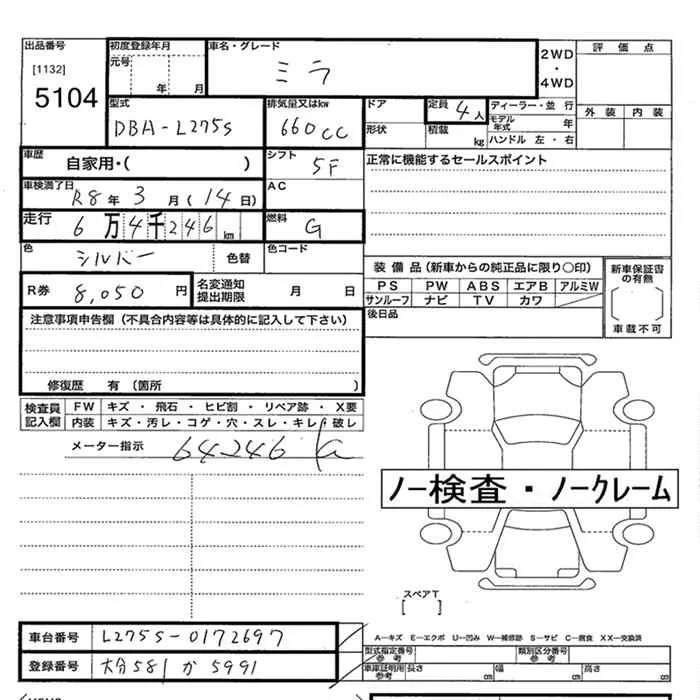 出品番号
[1132]
5104
初度登録年月
元号
年 月
車名・グレード
ミラ
2WD
・
4WD
評価点
外装 内装
型式
DBA-L275S
排気量又はkw
660cc
ドア
形状
定員 4人
積載 kg
ディーラー・並行
モデル年式 年
ハンドル 左・右
車歴
自家用・( )
シフト
5F
正常に機能するセールスポイント
車検満了日
R8年 3月(14日)
AC
走行
6万4千246km
燃料
G
色
シルバー
色替
色コード
装備品(新車からの純正品に限り○印)
PS PW ABS エアB アルミW
サンルーフ ナビ TV カワ
新車保証書の有無
[ ]
車載不可
R券
8,050円
名変通知
提出期限
月 日
後日品
注意事項申告欄(不具合内容等は具体的に記入して下さい)
修復歴 有〔箇所 〕
検査員
記入欄
FW キズ・飛石・ヒビ割・リペア跡・X要
内装 キズ・汚レ・コゲ・穴・スレ・キレ・破レ
メーター指示
64246
ノー検査・ノークレーム
スペアT
[ ]
車台番号
L275S-0172697
登録番号
大分581か5991
A-キズ E-エクボ U-凹み W-補修跡 S-サビ C-腐食 XX-交換済
型式指定番号
参考
類別区分番号
参考
車庫証明用
参考
長さ cm
幅 cm
高さ cm